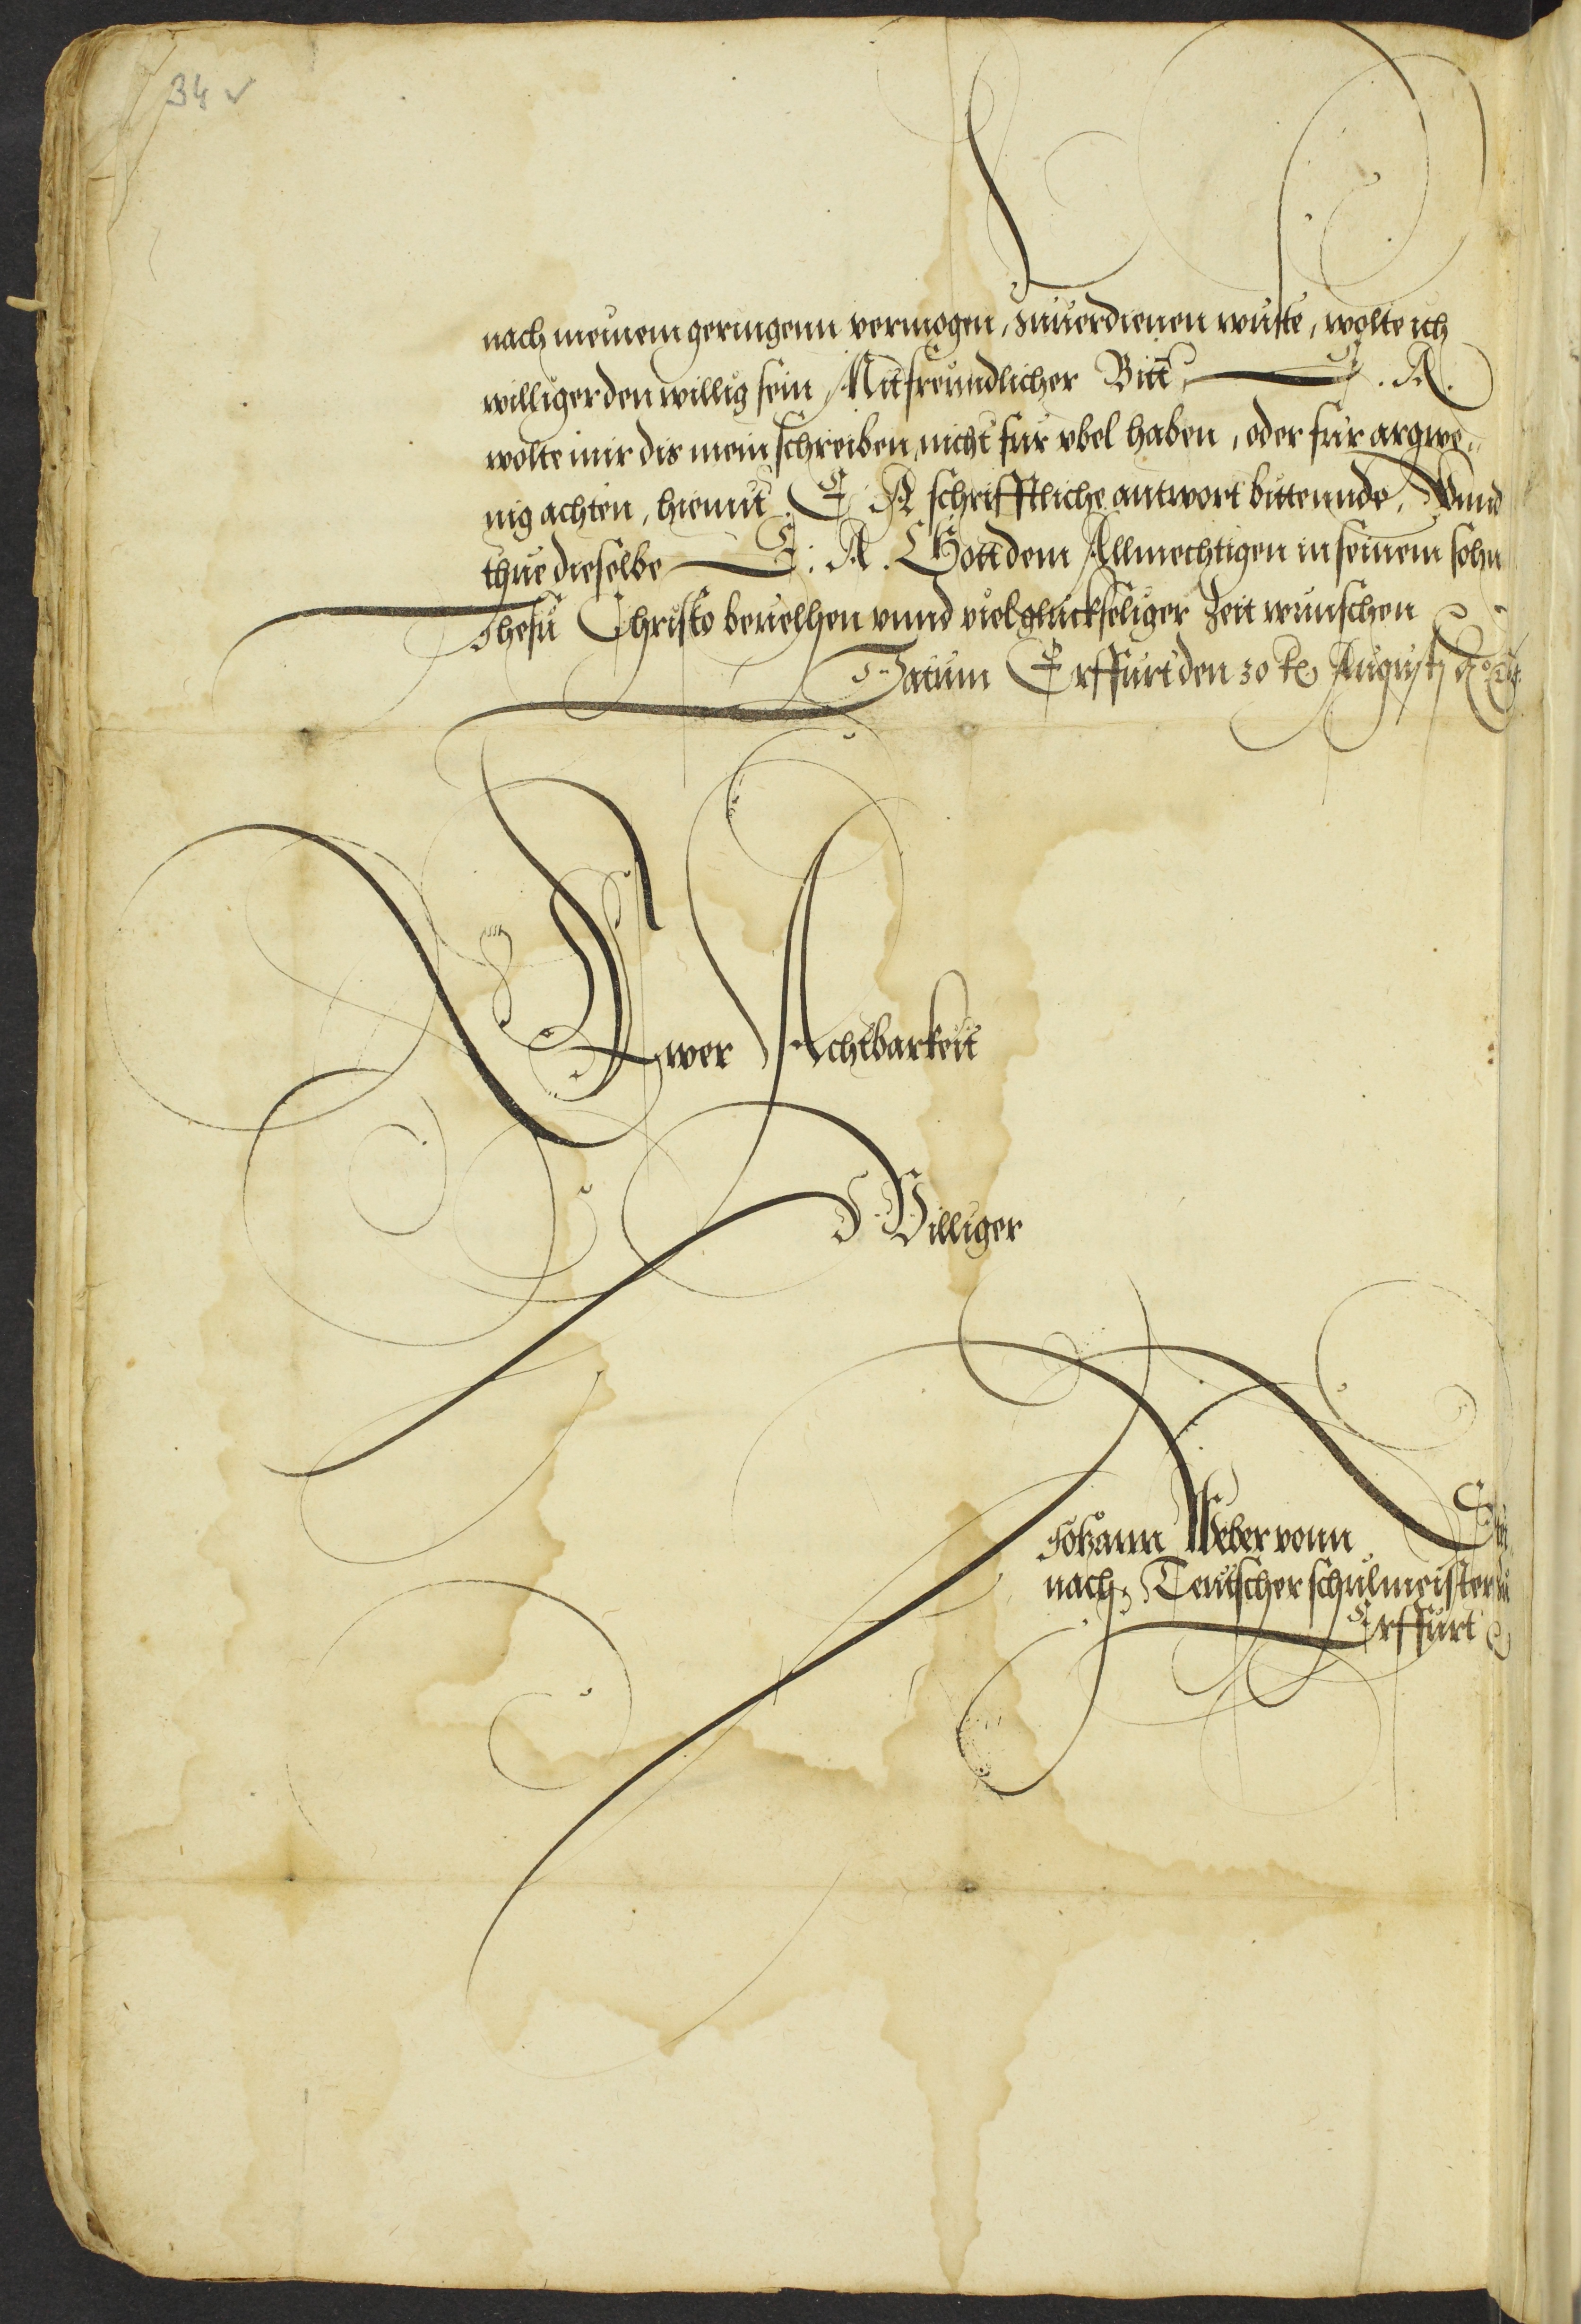 34 v
nach meinem geringenn vermogen, zuuerdienen wuste, wolte ich
williger den willig sein, Mit freundlicher Bitt, E. A.
wolte mir dis mein schreiben, nicht fur vbel haben, oder fur argwe-
nig achten, hiemit E. A schrifftliche antwort bittennde, Vnnd
thue dieselbe E: A. Gott dem Allmechtigen in seinem sohn
Jhesu Christo beuelhen vnnd viel gluckseliger Zeit wunschen
Datum Erffurt den 30 Augusti
Ewer Achtbarkeit
Williger
Johann Weber vonn
nach, Teutscher schulmeister
Erffurt